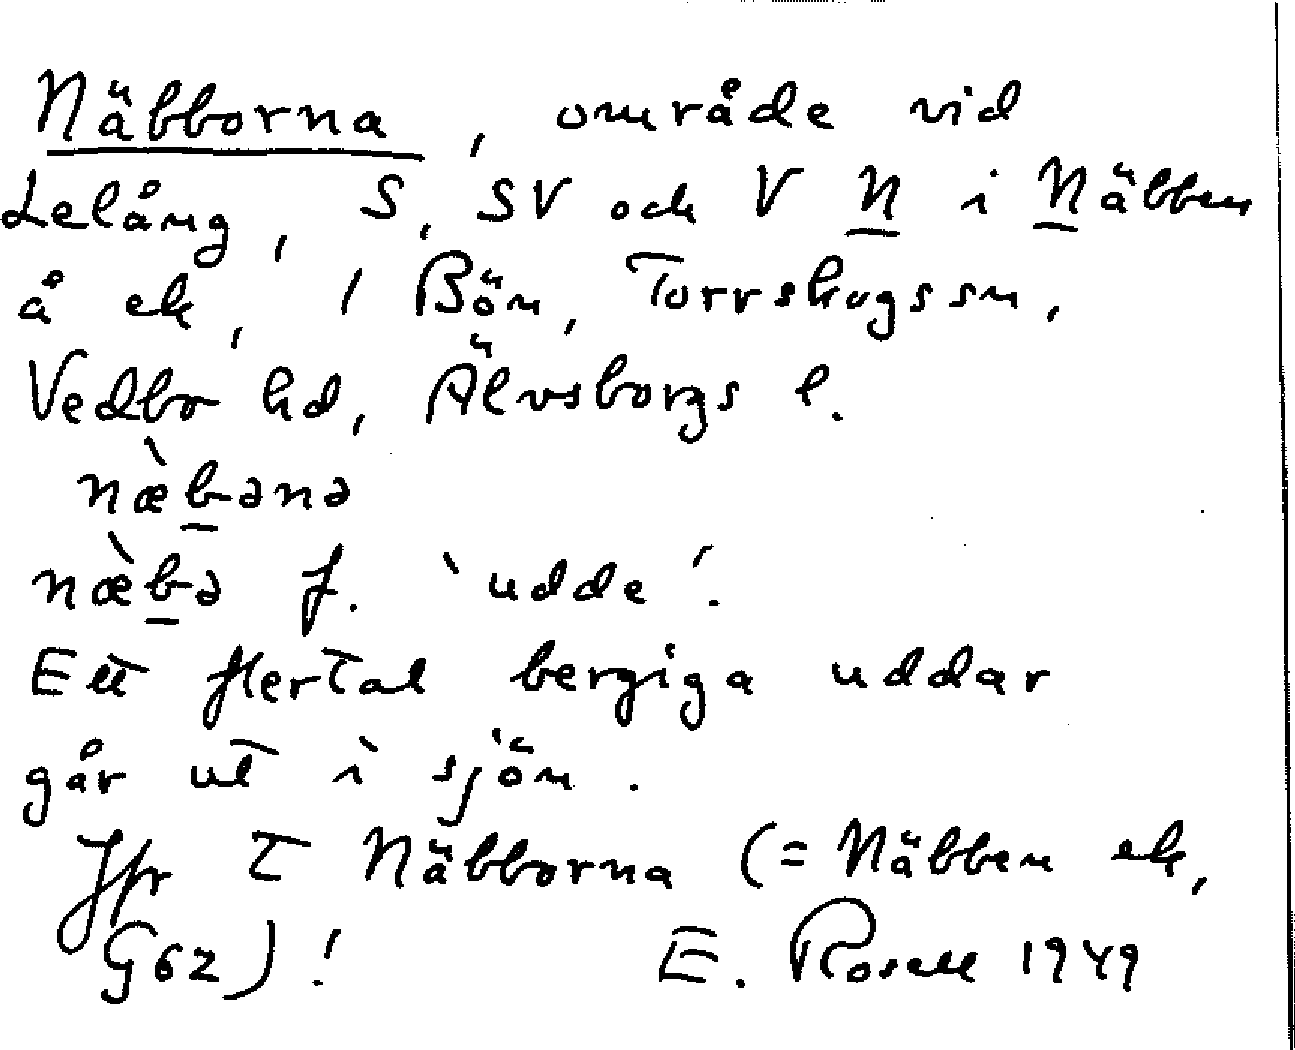 Näbborna, område vid
Lelång, S, SV och V N i Näbben
å ek, 1 Bön, Torrskogs sn,
Vedbo hd, Älvsborgs l.
næ̀bənə
næ̀bə f. `udde´.
Ett flertal bergiga uddar
går ut i sjön.
Jfr T Näbborna (= Näbben ek,
G62)! E. Rosell 1949